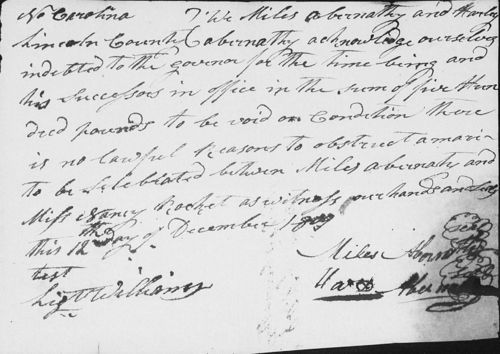 No Carolina } We Miles abernathy and Harley
Lincoln County } abernathy acknowledge ourselves
indebted to the govenor for the time being and
his Successors in office in the sum of five Hun
dred pounds to be void on Condition there
is no lawful Reasons to obstruct a mari
to be Selebrated between Miles abernathy and
Miss Nancy Rocket as witness our hands and Seals
this 12th day of December 1809
test
Miles Abernathy Seal
Lig Williams
Seal